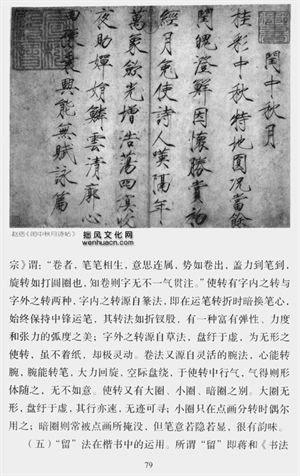 閏中秋月
桂彩中秋特地圓況當餘
閏魄澄鮮因懷勝賞初
經月免使詩人嘆隔年
萬象歛光增浩蕩四溟收
夜助嬋娟鱗雲清廓心
田豫乘興能無賦詠篇
赵佶《闰中秋月诗帖》
拙风文化网
wenhuacn.com
宗》谓：“卷者，笔笔相生，意思连属，势如卷出，盖力到笔到，
旋转如打圆圈也，知卷则字无不一气贯注。”使转有字内之转与
字外之转两种，字内之转源自篆法，即在运笔转折时暗换笔心，
始终保持中锋运笔，其转法如折钗股，有一种富有弹性、力度
和张力的弧度之美；字外之转源自草法，盘纡于虚，为无形之
使转，虽不着纸，却极灵动。卷法又源自灵活的腕法，心能转
腕，腕能转笔，大力回旋，空际盘绕，于使转中行气，气得则形
体随之，无不如意。使转又有大圈、小圈、暗圈之别。大圈无
形，盘纡于虚，其行亦速，无迹可寻；小圈只在点画分转时偶尔
用之；暗圈则常被点画所掩没，但笔意若隐若显，很有韵味。
（五）“留”法在楷书中的运用。所谓“留”即蒋和《书法
79